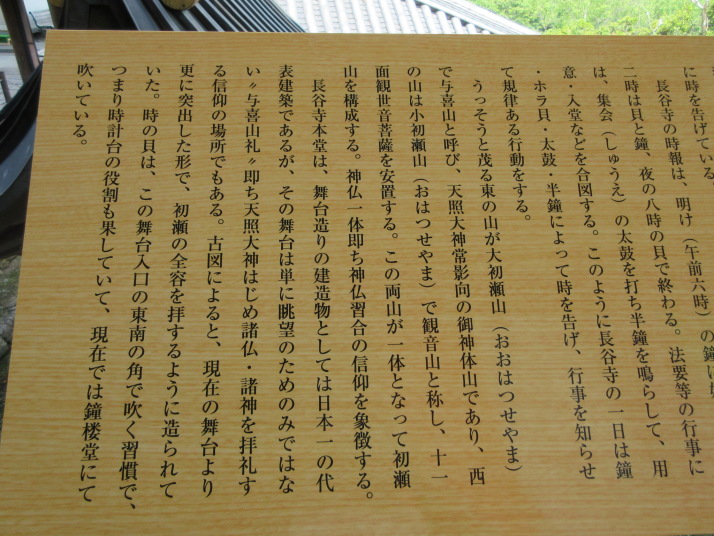 に時を告げている
長谷寺の時報は、明け（午前六時）の鐘に
二時は貝と鐘、夜の八時の貝で終わる。法要等の行事に
は、集会（しゅうえ）の太鼓を打ち半鐘を鳴らして、用
意・入堂などを合図する。このように長谷寺の一日は鐘
・ホラ貝・太鼓・半鐘によって時を告げ、行事を知らせ
て規律ある行動をする。
うっそうと茂る東の山が大初瀬山（おおはつせやま）
で与喜山と呼び、天照大神常影向の御神体山であり、西
の山は小初瀬山（おはつせやま）で観音山と称し、十一
面観世音菩薩を安置する。この両山が一体となって初瀬
山を構成する。神仏一体即ち神仏習合の信仰を象徴する。
長谷寺本堂は、舞台造りの建造物としては日本一の代
表建築であるが、その舞台は単に眺望のためのみではな
い〝与喜山礼〟即ち天照大神はじめ諸仏・諸神を拝礼す
る信仰の場所でもある。古図によると、現在の舞台より
更に突出した形で、初瀬の全容を拝するように造られて
いた。時の貝は、この舞台入口の東南の角で吹く習慣で、
つまり時計台の役割も果していて、現在では鐘楼堂にて
吹いている。